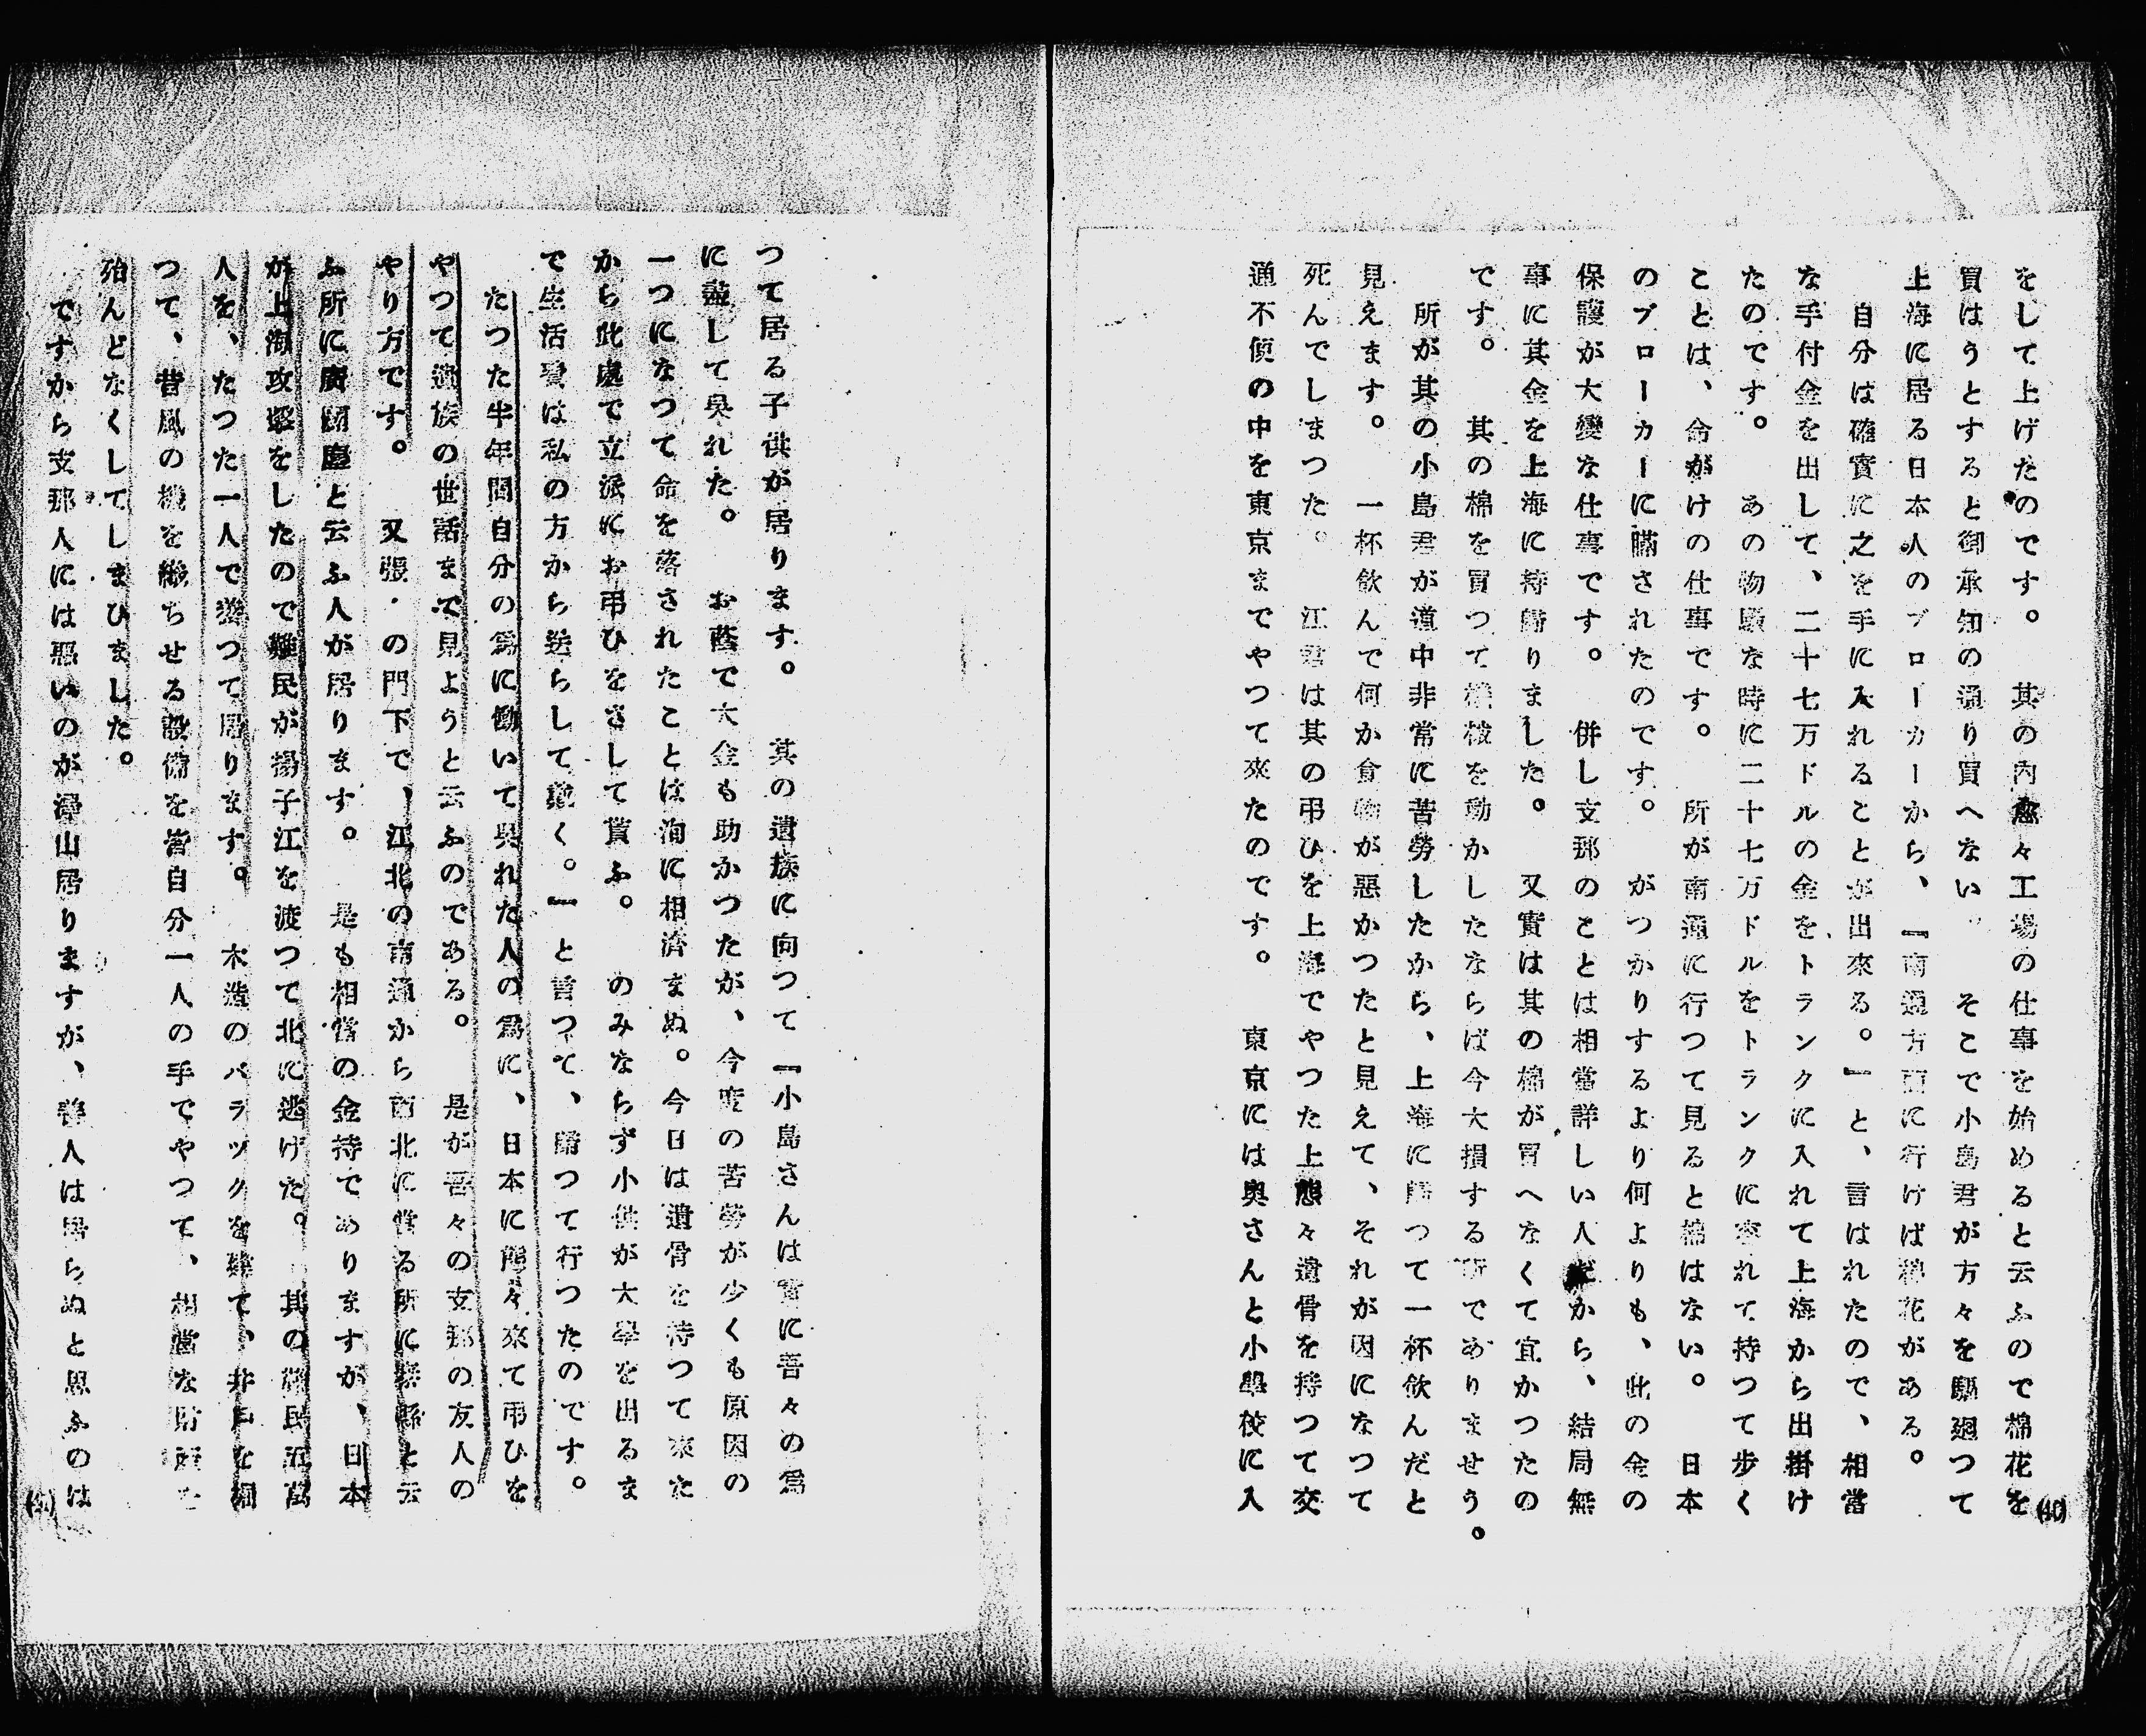 をして上げたのです。　其の内愈々工場の仕事を始めると云ふので棉花を
買はうとすると御承知の通り買へない。　そこで小島君が方々を駆廻つて
上海に居る日本人のブローカーから、『南通方面に行けば棉花がある。
自分は確實に之を手に入れることが出來る。』と、言はれたので、相當
な手付金を出して、二十七万ドルの金をトランクに入れて上海から出掛け
たのです。　あの物騒な時に二十七万ドルをトランクに容れて持つて歩く
ことは、命がけの仕事です。　所が南通に行つて見ると棉はない。　日本
のブローカーに瞞されたのです。　がつかりするより何よりも、此の金の
保護が大變な仕事です。　併し支那のことは相當詳しい人だから、結局無
事に其金を上海に持歸りました。　又實は其の棉が買へなくて宜かつたの
です。　其の棉を買つて機械を動かしたならば今大損する所でありませう。
所が其の小島君が道中非常に苦勞したから、上海に歸つて一杯飲んだと
見えます。　一杯飲んで何か食物が惡かつたと見えて、それが因になつて
死んでしまつた。　江君は其の弔ひを上海でやつた上態々遺骨を持つて交
通不便の中を東京までやつて來たのです。　東京には奥さんと小學校に入
(40)
つて居る子供が居ります。　其の遺族に向つて『小島さんは實に吾々の爲
に盡して呉れた。　お蔭で大金も助かつたが、今度の苦勞が少くも原因の
一つになつて命を落されたことは洵に相濟まぬ。今日は遺骨を持つて來た
から此處で立派にお弔ひをさして貰ふ。　のみならず小供が大學を出るま
で生活費は私の方から送らして戴く。』と言つて、歸つて行つたのです。
たつた半年間自分の爲に働いて呉れた人の爲に、日本に態々來て弔ひを
やつて遺族の世話まで見ようと云ふのである。　是が吾々の支那の友人の
やり方です。　又張・の門下で、江北の南通から西北に當る所に縣と云
ふ所に慶と云ふ人が居ります。　是も相當の金持でありますが、日本
が上海攻撃をしたので難民が揚子江を渡つて北に逃げた。　其の難民五萬
人を、たつた一人で養つて居ります。　木造のバラツクを建て、井戸を掘
つて、昔風の機を織ちせる設備を皆自分一人の手でやつて、相當な財産を
殆んどなくしてしまひました。
ですから支那人には惡いのが澤山居りますが、善人は居らぬと思ふのは